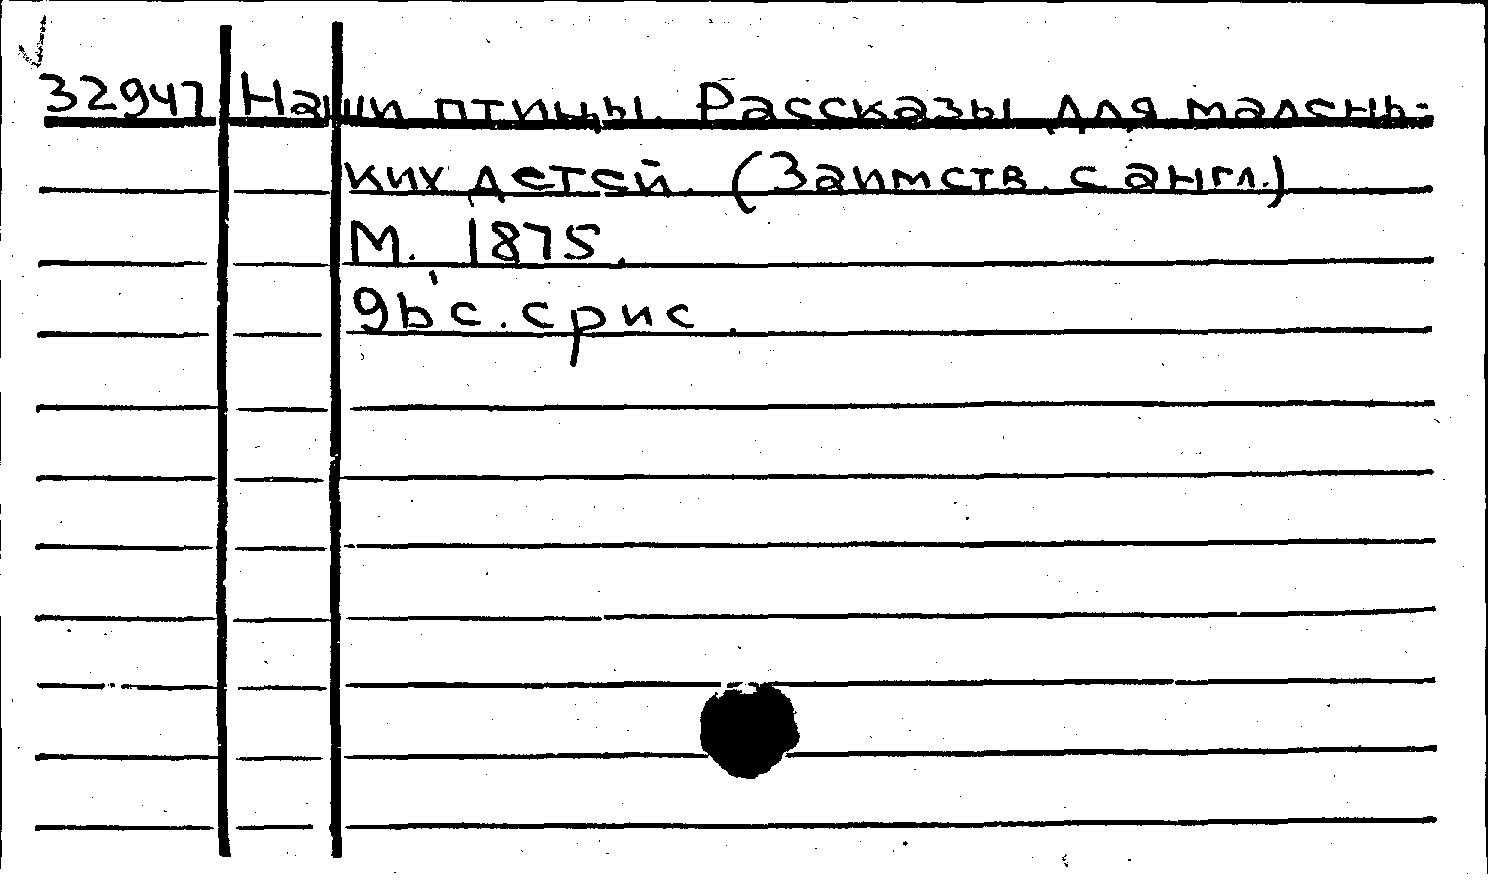 32947 Наши птицы. Рассказы для малень-
ких детей. (Заимств. с англ.)
М. 1875.
96 с. с рис.